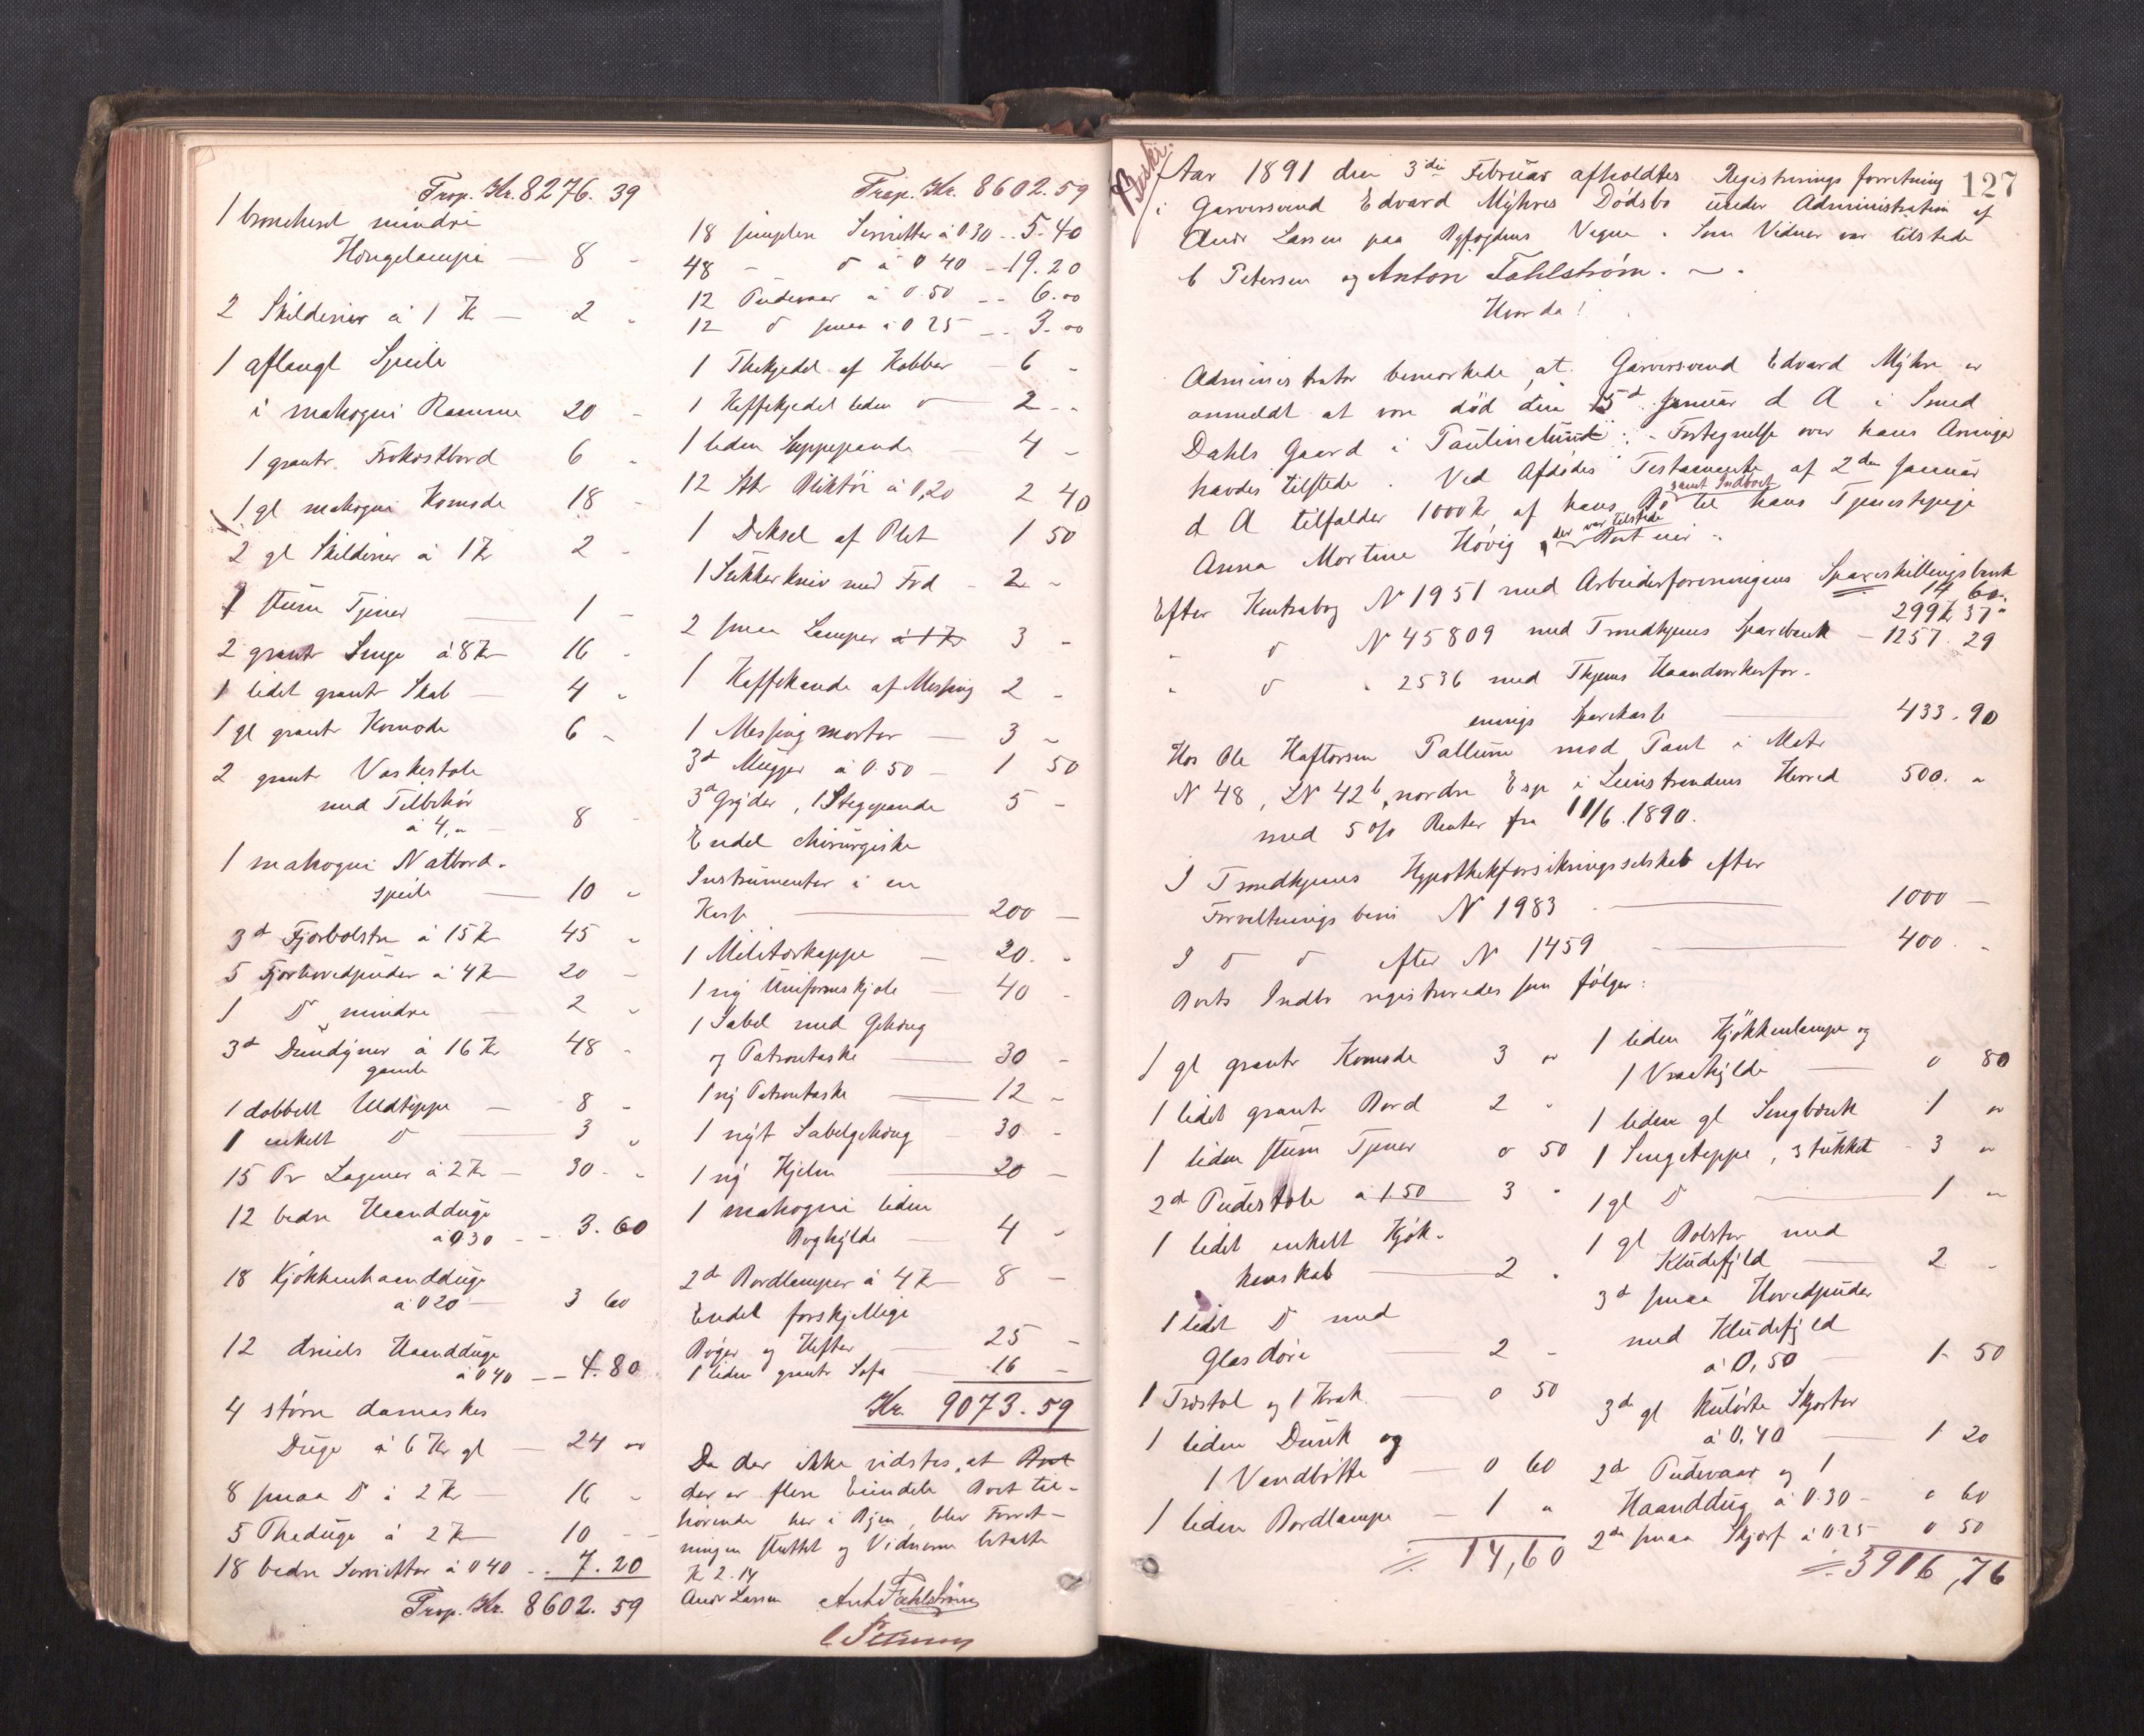 Trsp. Kr. 8276. 39
1 broncheret mindre
Hængelampe — 8 -
2 Skilderier à 1 Kr — 2 -
1 aflangt Speile
i mahogni Ramme 20 -
1 grantr. Frokostbord 6 -
1 gl mahogni Komode 18 -
2 gl Skilderier à 1 Kr 2 -
1 stum Tjener — 1 -
2 grantr Senge à 8 Kr 16 -
1 lidet grantr Skab — 4 -
1 gl grantr Komode 6 -
2 grantr Vaskestole
med Tilbehør
à 4,- 8 -
1 mahogni Natbord-
speile — 10 -
3de Fjærbolstre à 15 Kr 45 -
5 Fjærhovedpuder à 4 Kr 20 -
1 D mindre — 2 -
3de Dundyner à 16 Kr 48 -
gamle
1 dobbelt Uldteppe — 8 -
1 enkelt D — 3 -
15 Pr Lagener à 2 Kr — 30. -
12 bedre Haandduge
à 0 30 - - 3. 60
18 Kjøkkenhaandduge
à 0 20 — 3 60
12 dreiels Haandduge
à 0 40 - - 4. 80
4 større damaskes
Duge à 6 Kr gl — 24 00
8 smaa D à 2 Kr — 16 -
5 Theduge à 2 Kr 10 - -
18 bedre Servietter à 0 40 - . 7. 20
Trsp. Kr. 8602. 59
Trsp. Kr. 8602. 59
18 simplere Servietter à 0.30 - - 5. 40
48 - D à 0 40 - 19. 20
12 Pudevaar à 0. 50 - - 6. 00
12 D smaa à 0 25 - - 3. 00
1 Thekjedel af Kobber — 6 -
1 Kaffekjedel liden D — 2 - -
1 liden Suppepande — 4 -
12 Stkr Bliktøi à 0,20 2 40
1 Deksel af Plet 1 50
1 Sukkerkniv med Fod - 2 -
2 smaa Lamper à 1 Kr 3 -
1 Kaffekande af Messing 2 -
1 Messing morter — 3 -
3de Mugger à 0. 50 - 1 50
3de Gryder, 1 Stegepande 5 -
Endel chirurgiske
Instrumenter i en
Kasse — 200 —
1 Militærkappe — 20. -
1 ny Uniformskjole — 40 -
1 Sabel med Gehæng
og Patrontaske — 30 -
1 ny Patrontaske — 12 -
1 nyt Sabelgehæng — 30 -
1 ny Hjelm — 20 —
1 mahogni liden
Boghylde — 4 -
2de Bordlamper à 4 Kr — 8 —
Endel forskjellige
Bøger og Hefter — 25 -
1 liden grantr Sofa — 16 —
Kr. 9073. 59
Da der ikke vidstes, at Bo
der er flere Eiendele Boet til-
hørende her i Byen, blev Forret-
ningen sluttet og Vidnerne betalte
K 2. 14
Andr Larsen Ant Fahlstrøm
C Petersen
127
Aar 1891 den 3die Februar afholdtes Registrerings forretning
i Garversvend Edvard Myhres Dødsbo under Administration af
Andr Larsen paa Byfogdens Vegne. Som Vidner var tilstede
C Petersen og Anton Fahlstrøm. — .
Hvorda!
Administrator bemærkede, at Garversvend Edvard Myhre er
anmeldt at være død den 15de Januar d A i Smed
Dahls Gaard i Paulinelund: - Fortegnelse over hans Arvinger
havdes tilstede. Ved Afdødes Testamente af 2den Januar
samt Indboet
d A tilfalder 1000 Kr af hans Bo til hans Tjenestepige
var tilstede
Anna Martine Høvig, der Boet eier -
Efter Kontrabog N 1951 med Arbeiderforeningens Spareskillingsbank
14 60.
299 Kr 37 -
- D N 45809 med Trondhjems Sparebank — 1257. 29
- D - 2536 med Thjems Haandverkerfor-
enings Sparekasse — 433. 90
Hos Ole Haftorsen Pallum mod Pant i Matr
N 48, LN 42b, nordre Esp i Leinstrandens Herred 500. -
med 5 o/o Renter fra 11/6. 1890.
I Trondhjems Hypothekforsikringsselskab efter
Forvaltnings bevis N 1983 — 1000 —
I D D efter N 1459 — 400. -
Boets Indbo registreredes som følger:
1 gl grantr Komode 3 00
1 lidet grantr Bord 2 -
1 liden stum Tjener 0 50
2de Pudestole à 1 50 3 -
1 lidet enkelt Kjøk-
kenskab — 2 -
1 lidet D med
Glasdøre — 2 -
1 Træstol og 1 Krak — 0 50
1 liden Dunk og
1 Vandbøtte — 0 60
1 liden Bordlampe — 1 -
14,60
1 liden Kjøkkenlampe og
1 Vraahylde — 0 80
1 liden gl Sengbænk 1 00
1 Sengeteppe, stukket - 3 00
1 gl D — 1 -
1 gl Bolster med
Kludefyld — 2 -
3de smaa Hovedpuder
med Kludefyld
à 0,50 — 1 50
3de gl kulørte Skjorter
à 0,40 — 1 20
2de Pudevaar og 1
Haanddug à 0.30 - 0 60
2de smaa Skjærf à 0 25 0 50
3906,76